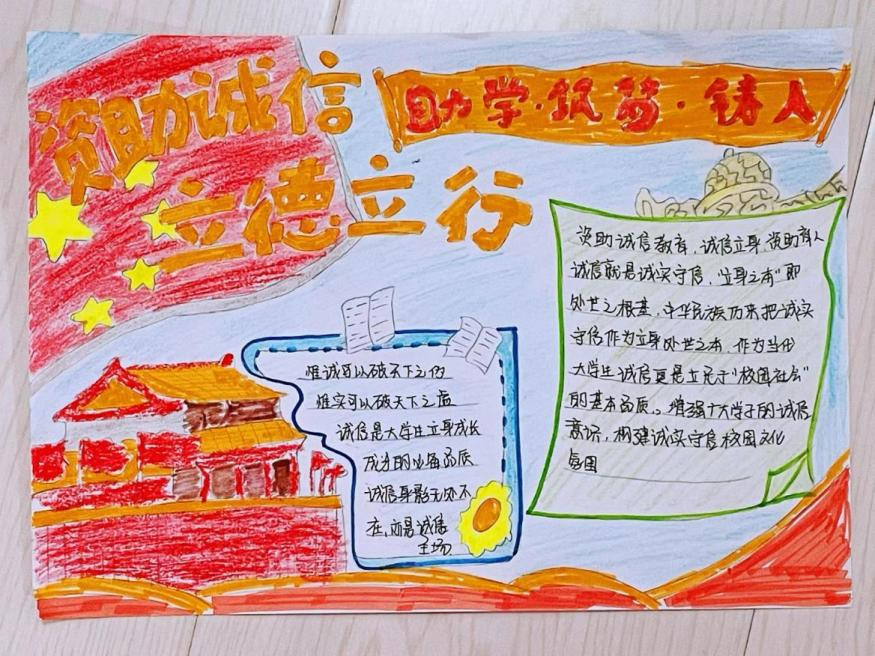 资助诚信
立德立行
助学·筑梦·铸人
资助诚信教育，诚信立身，资助育人
诚信就是诚实守信，"立身之本"即
处世之根基，中华民族历来把诚实
守信作为立身处世之本，作为当代
大学生诚信更是立足于"校园社会"
的基本品质。增强广大学子的诚信
意识，构建诚实守信校园文化
氛围
惟诚可以破天下之伪
惟实可以破天下之虚
诚信是大学生立身成长
成才的必备品质
诚信身影无处不
在，而是诚信